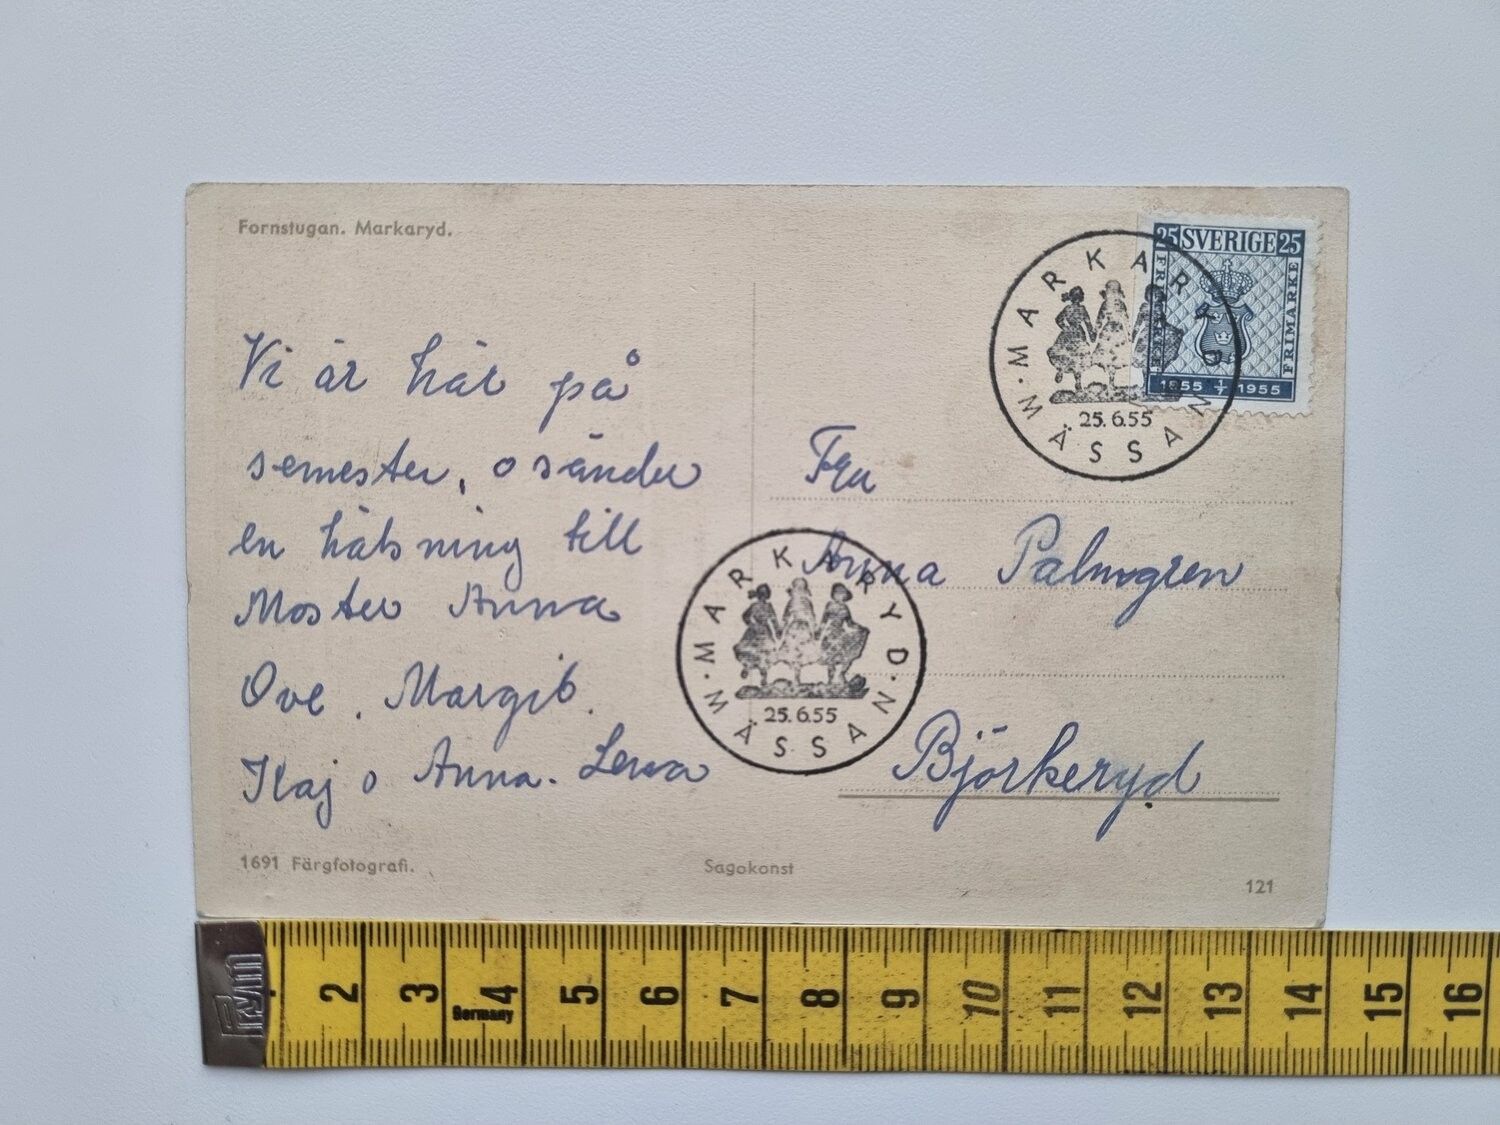 Fornstugan. Markaryd.
Vi är här på
semester, o sänder
en hälsning till
Moster Anna
Ove. Margit.
Kaj o Anna-Lena
1691 Färgfotografi.
Sagokonst
121
25 SVERIGE 25
FRIMÄRKE
FRIMÄRKE
1855 1/7 1955
MARKARYD
25.6.55
MÄSSAN
Fru
Anna Palmgren
Björkeryd
MARKARYD
25.6.55
MÄSSAN
Prym
2 3 4 5 6 7 8 9 10 11 12 13 14 15 16
Germany